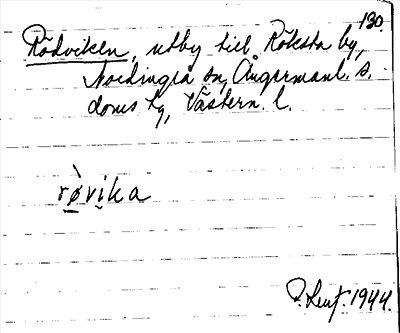 130.
Rödviken, utby till Röksta by,
Nordingrå sn, Ångermanl. s.
doms hg, Västern. l.
rø̀vika
1944.